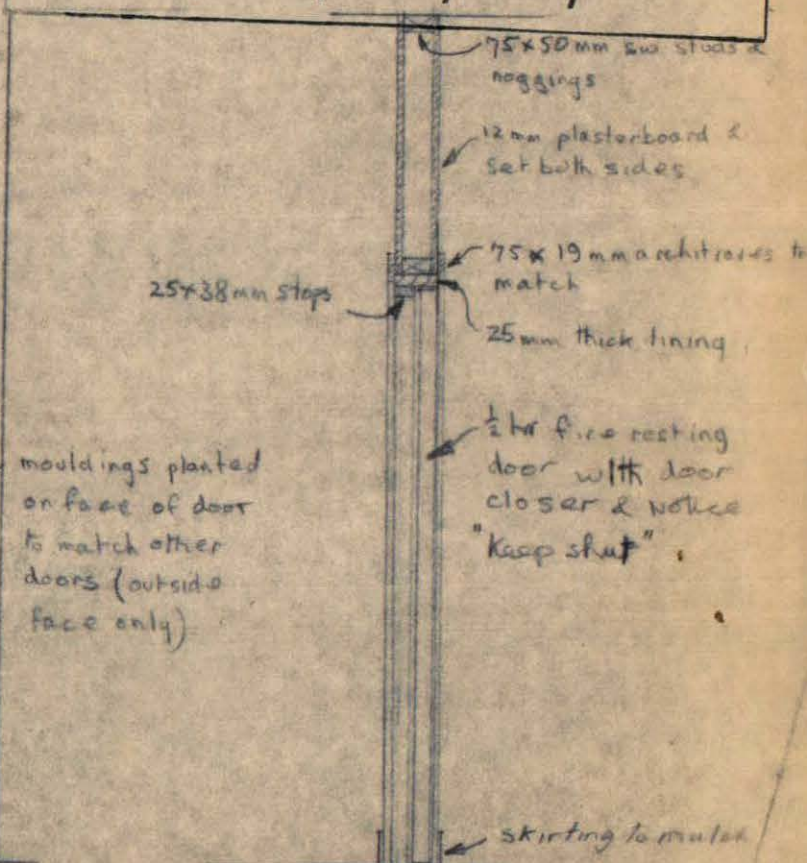 75×50 mm sw studs &
noggings
12 mm plasterboard &
set both sides
75 × 19 mm architraves to
match
25×38mm stops
25mm thick lining
½ hr fire resting
door with door
closer & notice
"Keep shut".
mouldings planted
on face of door
to match other
doors (outside
face only)
skirting to match